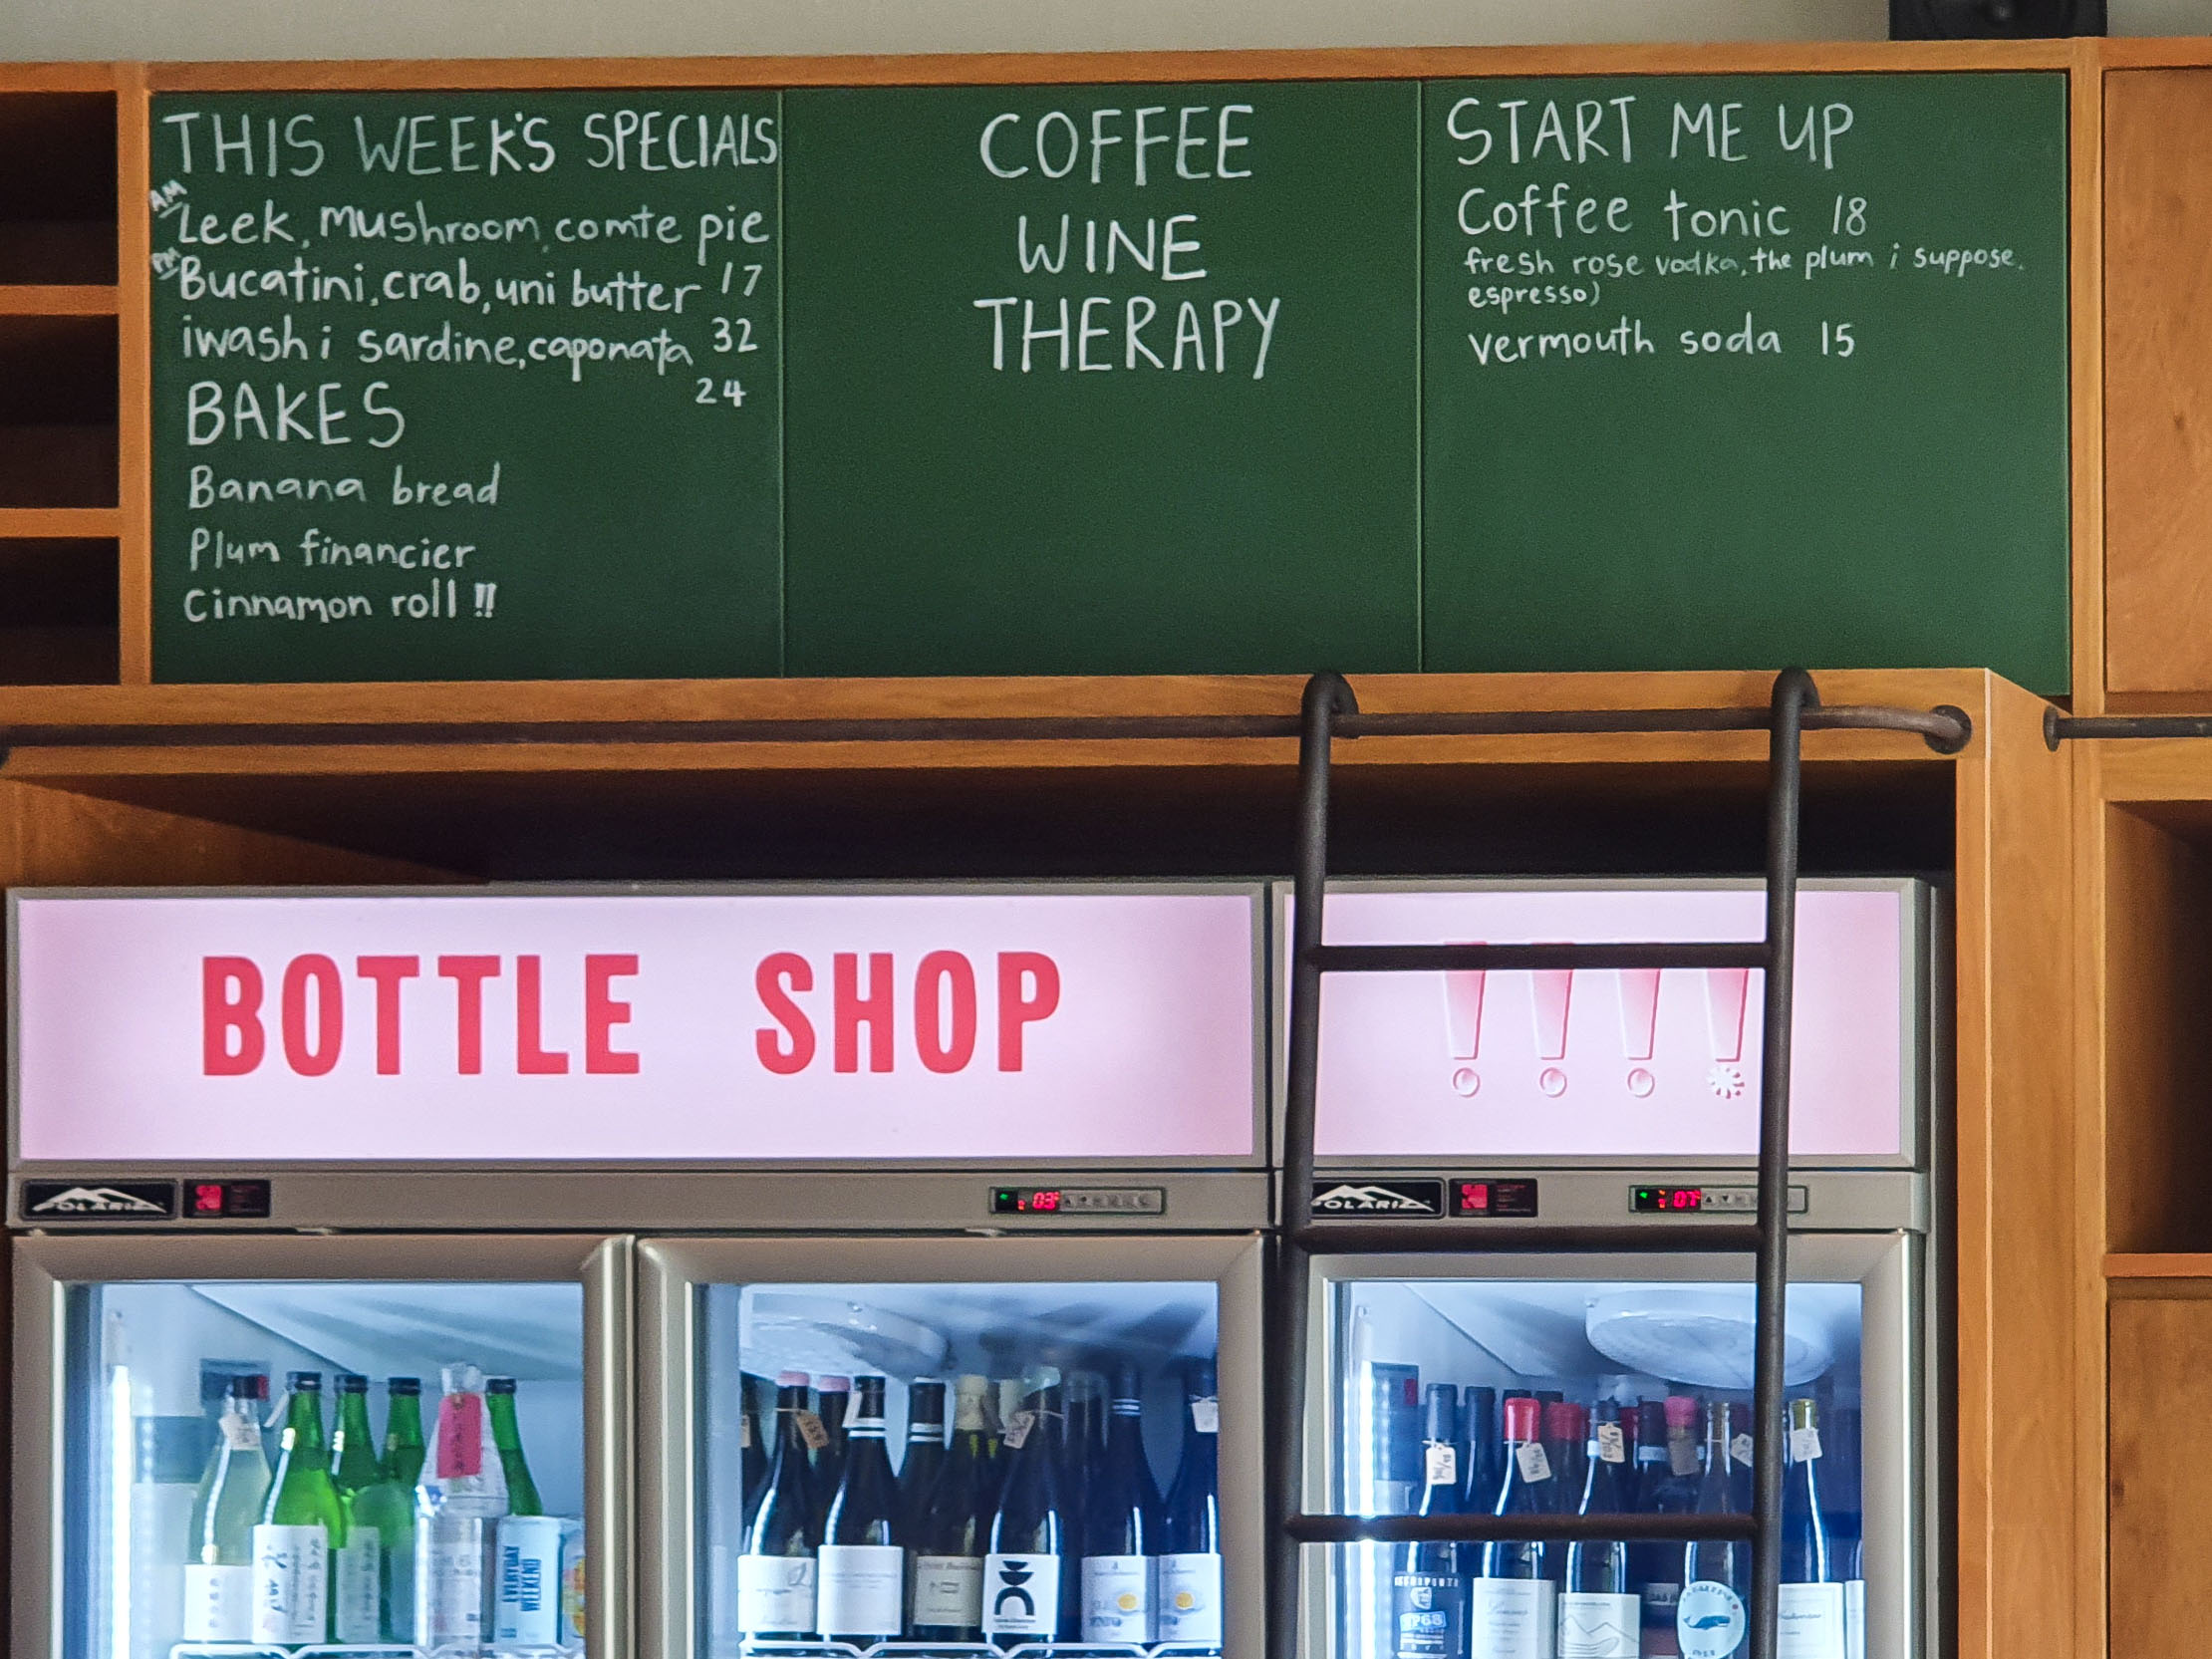 THIS WEEK'S SPECIALS
AM
Leek, mushroom, comte pie
17
PM
Bucatini, crab, uni butter
32
iwashi sardine, caponata
24
BAKES
Banana bread
Plum financier
Cinnamon roll !!
COFFEE
WINE
THERAPY
START ME UP
Coffee tonic 18
fresh rose vodka, the plum i suppose,
espresso)
vermouth soda 15
BOTTLE SHOP
!!!!
POLARIS
03
POLARIS
07
EVERYDAY
WEEKEND